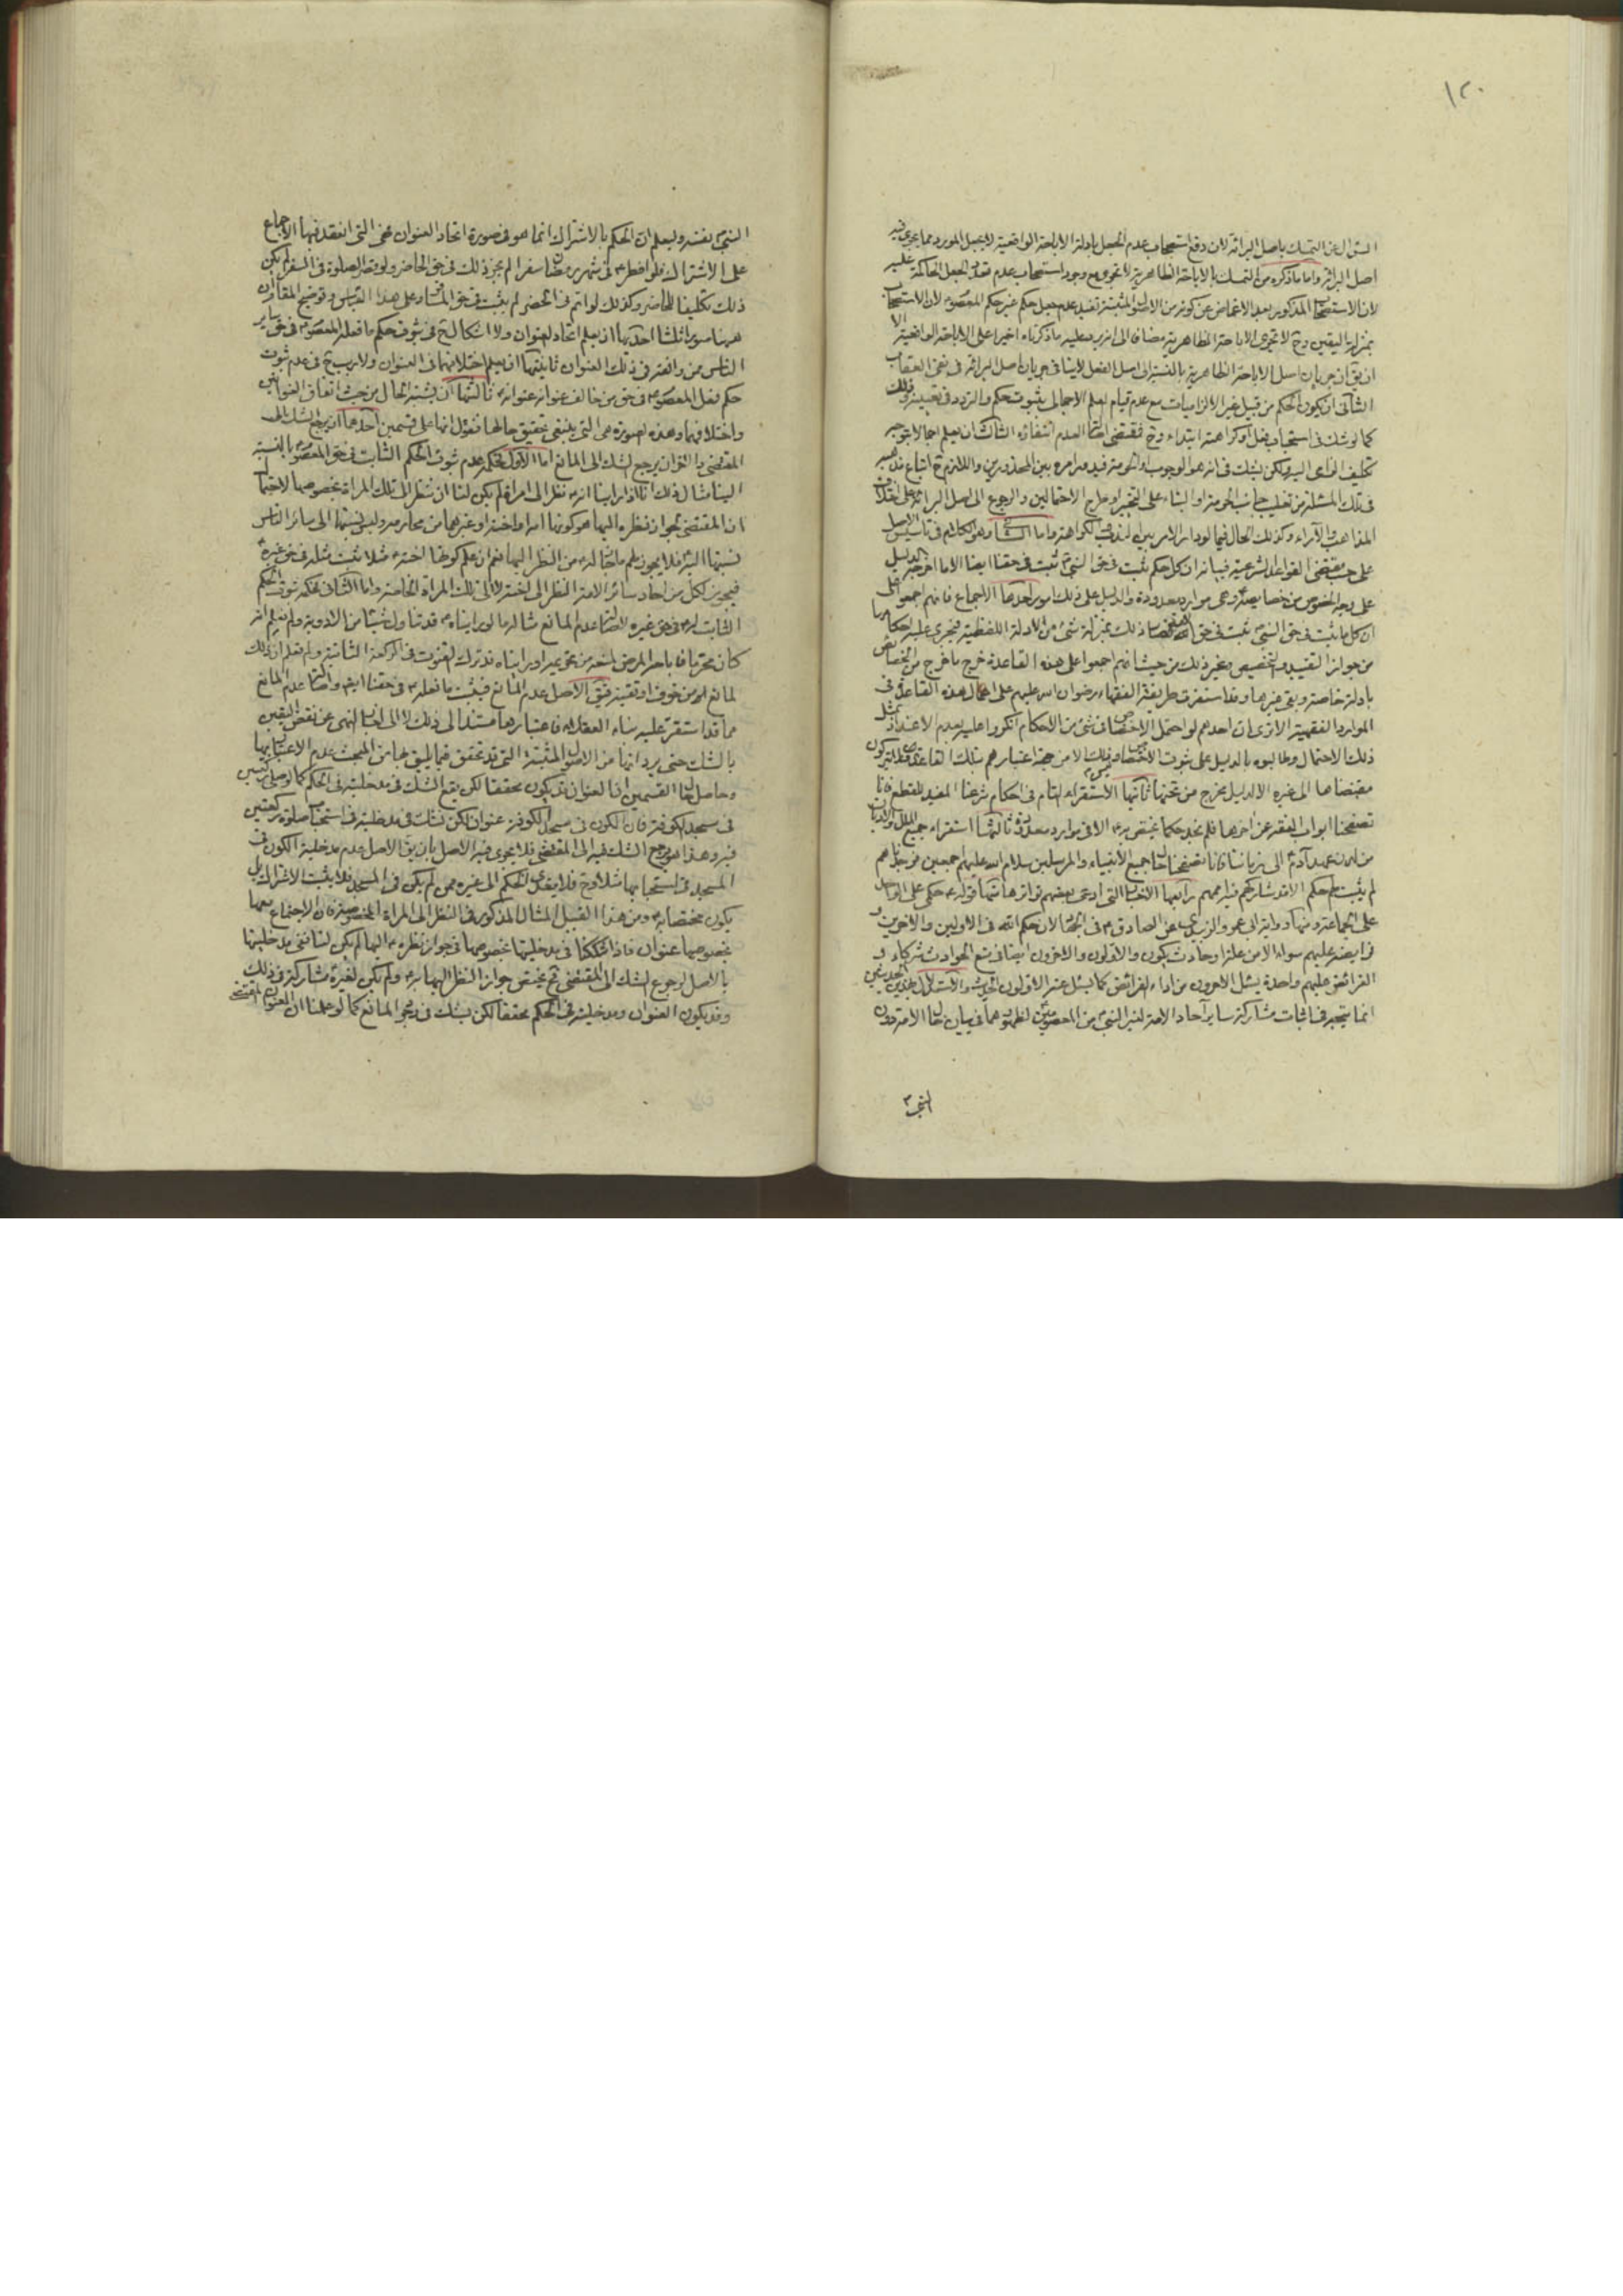 ١٢٠
السؤال عن التمسك باصل البرائة لان دفع استصحاب عدم الجعل بادلة الاباحة الواقعية لا يجعل المورد مما يجرى فيه
اصل البرائة واما ما ذكره من التمسك بالاباحة الظاهرية لا تجرى مع وجود استصحاب عدم تعلق الجعل الحاكمة عليه
لان الاستصحاب المذكور بعد الاغماض عن كونه من الاصول المثبتة تفيد عدم جعل حكم غير حكم المعصوم لان الاستصحاب
بمنزلة اليقين وح لا تجرى الاباحة الظاهرية مضافا الى انه يرد عليه ما ذكرناه اخيرا على الاباحة الواقعية الا
ان يق ان جريان اصل الاباحة الظاهرية بالنسبة الى اصل الفعل لا ينافى جريان اصل البرائة فى نفى العقاب
الثانى ان يكون الحكم من قبيل غير الالزاميات مع عدم قيام العلم الاجمالى بثبوت حكم والتردد فى تعيينه وذلك
كما لو شك فى استحباب فعل او كراهته ابتداء وح فمقتضى اصالة العدم انتفاؤه الثالث ان يعلم اجمالا بتوجه
تكليف الزامى اليه ولكن يشك فى انه هو الوجوب او الحرمة فيدور امره بين المحذورين واللازم ح اتباع مذهبه
فى تلك المسئلة من تغليب جانب الحرمة او البناء على التخيير او طرح الاحتمالين والرجوع الى اصل البرائة على اختلاف
المذاهب والآراء وكذلك الحال فيما لو دار الامر بين الندب والكراهة واما الثانى وهو الكلام فى تاسيس الاصل
على حسب مقتضى القواعد الشرعية فبيانه ان كل حكم ثبت فى حق النبى ثبت فى حقنا ايضا الا ما اخرجه الدليل
على وجه الخصوص من خصايصه وهى موارد معدودة والدليل على ذلك امور احدها الاجماع فانهم اجمعوا على
ان كل ما ثبت فى حق النبى ثبت فى حق الامة فصار ذلك بمنزلة شئ من الادلة اللفظية فيجرى عليه احكامها
من جواز التقييد والتخصيص وغير ذلك من حيث انهم اجمعوا على هذه القاعدة خرج ما خرج من الخصائص
بادلة خاصة وبقى غيرها وقد استقرت طريقة الفقهاء رضوان الله عليهم على اعمال هذه القاعدة فى
الموارد الفقهية الا ترى ان احدهم لو احتمل الاختصاص فى شئ من الاحكام انكروا عليه بعدم الاعتداد بمثل
ذلك الاحتمال وطالبوه بالدليل على ثبوت الاختصاص وليس ذلك الا من جهة اعتبارهم بتلك القاعدة فلا يتركون
مقتضاها الى غيره الا لدليل يخرج من تحتها ثانيها الاستقراء التام فى احكام شرعنا المفيد للقطع فانا
تصفحنا ابواب الفقه عن اخرها فلم نجد حكما يختص به الا فى موارد معدودة ثالثها استقراء جميع الملل والاديان
من لدن عهد آدم الى زماننا فانا تصفحنا حال جميع الانبياء والمرسلين سلام الله عليهم اجمعين فوجدناهم
لم يثبت لهم حكم الا قد شاركهم فيه اممهم رابعها الاخبار التى ادعى بعضهم تواترها منها قوله حكمى على الواحد
على الجماعة ومنها رواية ابى عمرو الزبيرى عن الصادق فى الجهاد لان حكم الله فى الاولين والاخرين و
فرايضه عليهم سواء الا من علة او حادث يكون والاولون والاخرون ايضا فى منع الحوادث شركاء و
الفرائض عليهم واحدة يسئل الاخرون من اداء الفرائض كما يسئل عنه الاولون الحديث والاستدلال بهذين الحديثين
انما يتجه فى اثبات مشاركة ساير آحاد الامة لغير النبى من المعصومين لظهورهما فى بيان حال الامة دون
النبى
النبى بنفسه وليعلم ان الحكم بالاشتراك انما هو فى صورة اتحاد العنوان فهى التى انعقد فيها الاجماع
على الاشتراك فلو افطر فى شهر رمضان سفرا لم يجز ذلك فى حق الحاضر ولو قصر الصلوة فى السفر لم يكن
ذلك تكليفا للحاضر وكذلك لو اتم فى الحضر لم يثبت فى حق المسافر وعلى هذا القياس وتوضيح المقام ان
ههنا صورا ثلثا احديها ان يعلم اتحاد العنوان ولا اشكال ح فى ثبوت حكم ما فعله المعصوم فى حق ساير
الناس ممن وافقه فى ذلك العنوان ثانيتها ان يعلم اختلافهما فى العنوان ولا ريب ح فى عدم ثبوت
حكم فعل المعصوم فى حق من خالف عنوانه عنوانه ثالثتها ان يشتبه الحال من حيث اتفاق العنوانين
واختلافهما وهذه الصورة هى التى ينبغى تحقيق حالها فنقول انها على قسمين احدهما ان يرجع الشك الى
المقتضى والثانى ان يرجع الشك الى المانع اما الاول فحكمه عدم ثبوت الحكم الثابت فى حق المعصوم بالنسبة
الينا مثال ذلك انا اذا راينا انه نظر الى امراة لم يكن لنا ان ننظر الى تلك المراة بخصوصها لاحتمال
ان المقتضى لجواز نظره اليها هو كونها امه او اخته او غيرهما من محارمه وليس نسبتها الى سائر الناس
نسبتها اليه فلا يجوز لهم ما جاز له من النظر اليها نعم ان علم كونها اخته مثلا ثبت مثله فى حق غيره
فيجوز لكل من احاد سائر الامة النظر الى اخته لا الى تلك المراة الخاصة واما الثانى فحكمه ثبوت الحكم
الثابت له فى حق غيره لاصالة عدم المانع مثاله ما لو راينا قد تناول شيئا من الادوية ولم نعلم انه
كان محرما فاباحه المرض لمنعه من تحريمه او راينا قد ترك القنوت فى الركعة الثانية ولم نعلم ان ذلك
لمانع له من خوف او تقية فيق الاصل عدم المانع فيثبت ما فعله فى حقنا ايض واصالة عدم المانع
مما قد استقر عليه بناء العقلاء فاعتبارها مستند الى ذلك لا الى اخبار النهى عن نقض اليقين
بالشك حتى يرد انها من الاصول المثبتة التى قد تحقق فيما يليق بها من المبحث عدم الاعتبار بها
وحاصل القسمين ان العنوان قد يكون محققا لكن يقع الشك فى مدخليته فى الحكم كما لو صلى ركعتين
فى مسجد الكوفة فان الكون فى مسجد الكوفة عنوان لكن نشك فى مدخليته فى استحباب صلوة ركعتين
فيه وهذا هو مرجع الشك فيه الى المقتضى فلا يجرى فيه الاصل بان يق الاصل عدم مدخلية الكون فى
المسجد فى استحبابها مثلا وح فلا يتعدى الحكم الى غيره ممن لم يكن فى المسجد فلا يثبت الاشتراك بل
يكون مختصا به ومن هذا القبيل المثال المذكور فى النظر الى المراة المخصوصة فان الاجتماع معها
بخصوصها عنوان فاذا شككنا فى مدخليتها بخصوصها فى جواز نظره اليها لم يكن لنا نفى مدخليتها
بالاصل لرجوع الشك الى المقتضى فح يختص جواز النظر اليها به ولم يكن لغيره مشاركة فى ذلك
وقد يكون العنوان ومدخليته فى الحكم محققا لكن يشك فى وجود المانع كما لو علمنا ان العنوان المقتضى